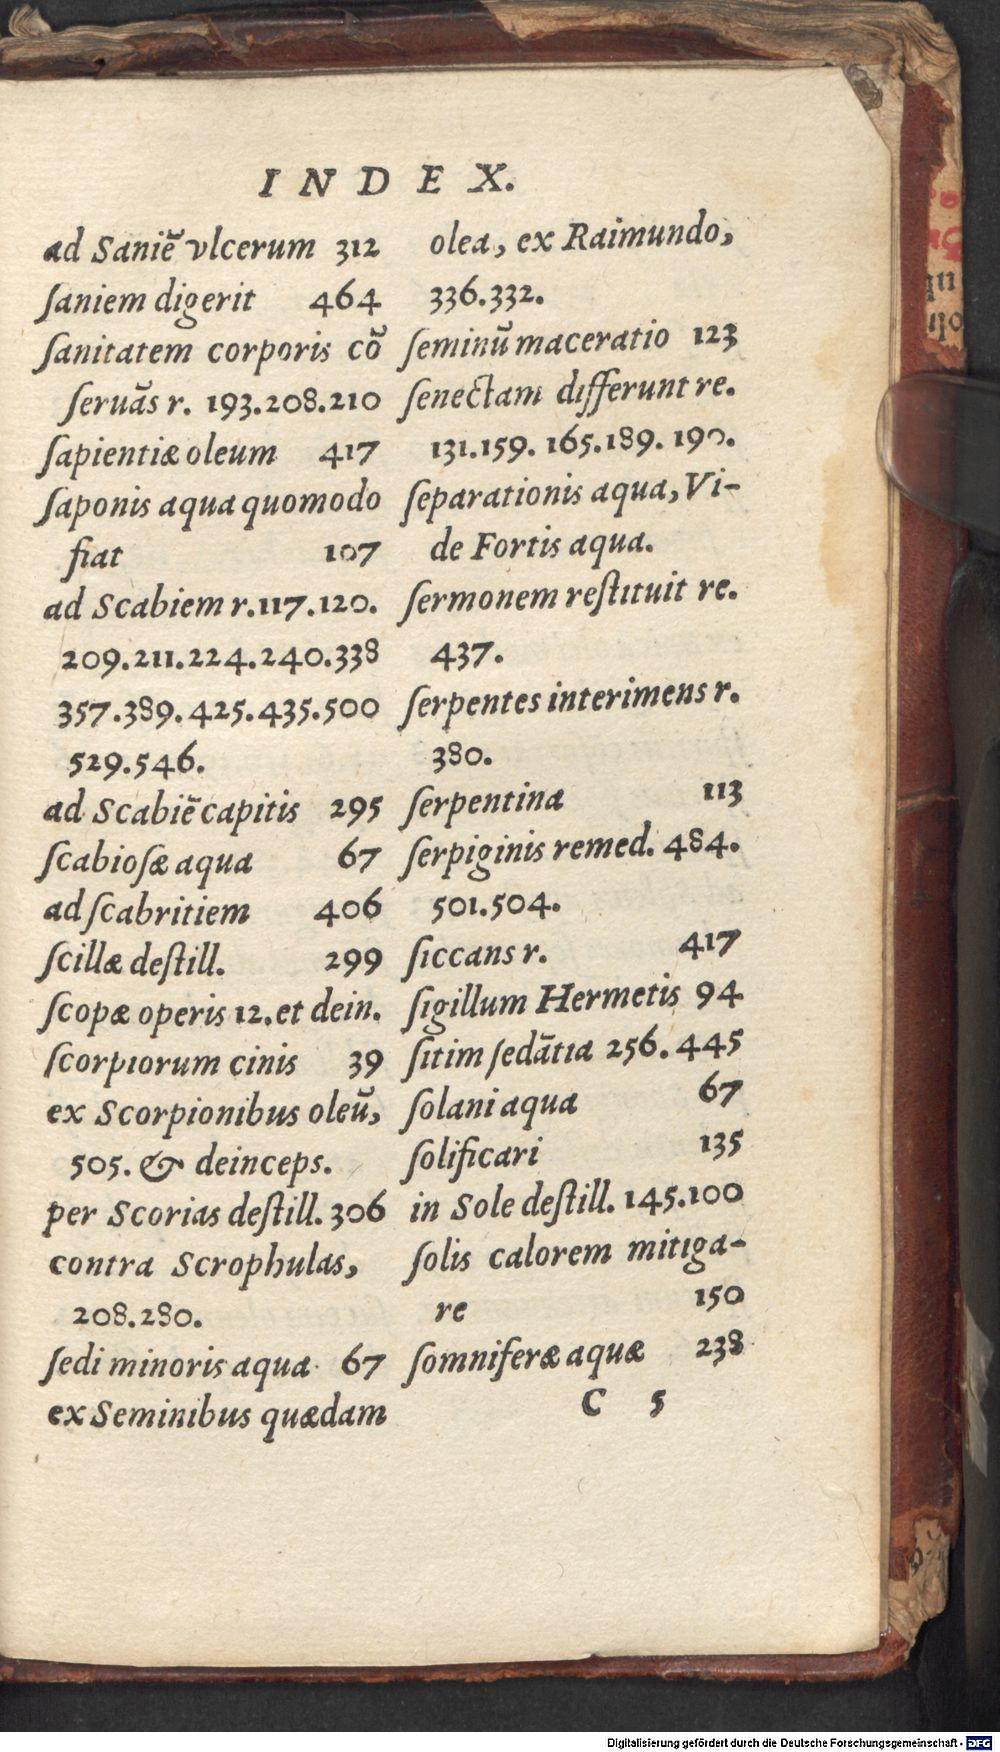 INDEX.
ad Saniẽ vlcerum 312
ſaniem digerit 464
ſanitatem corporis cõ
ſeruãs r. 193.208.210
ſapientiæ oleum 417
ſaponis aqua quomodo
fiat 107
ad Scabiem r.117.120.
209.211.224.240.338
357.389.425.435.500
529.546.
ad Scabiẽ capitis 295
ſcabioſæ aqua 67
ad ſcabritiem 406
ſcillæ deſtill. 299
ſcopæ operis 12.et dein.
ſcorpiorum cinis 39
ex Scorpionibus oleũ,
505. & deinceps.
per Scorias deſtill. 306
contra Scrophulas,
208.280.
ſedi minoris aqua 67
ex Seminibus quædam
olea, ex Raimundo,
336.332.
ſeminũ maceratio 123
ſenectam differunt re.
131.159.165.189.190.
ſeparationis aqua, Vi-
de Fortis aqua.
ſermonem reſtituit re.
437.
ſerpentes interimens r.
380.
ſerpentina 113
ſerpiginis remed. 484.
501.504.
ſiccans r. 417
ſigillum Hermetis 94
ſitim ſedãtia 256.445
ſolani aqua 67
ſolificari 135
in Sole deſtill. 145.100
ſolis calorem mitiga-
re 150
ſomniferæ aquæ 238
C 5
Digitalisierung gefördert durch die Deutsche Forschungsgemeinschaft - DFG